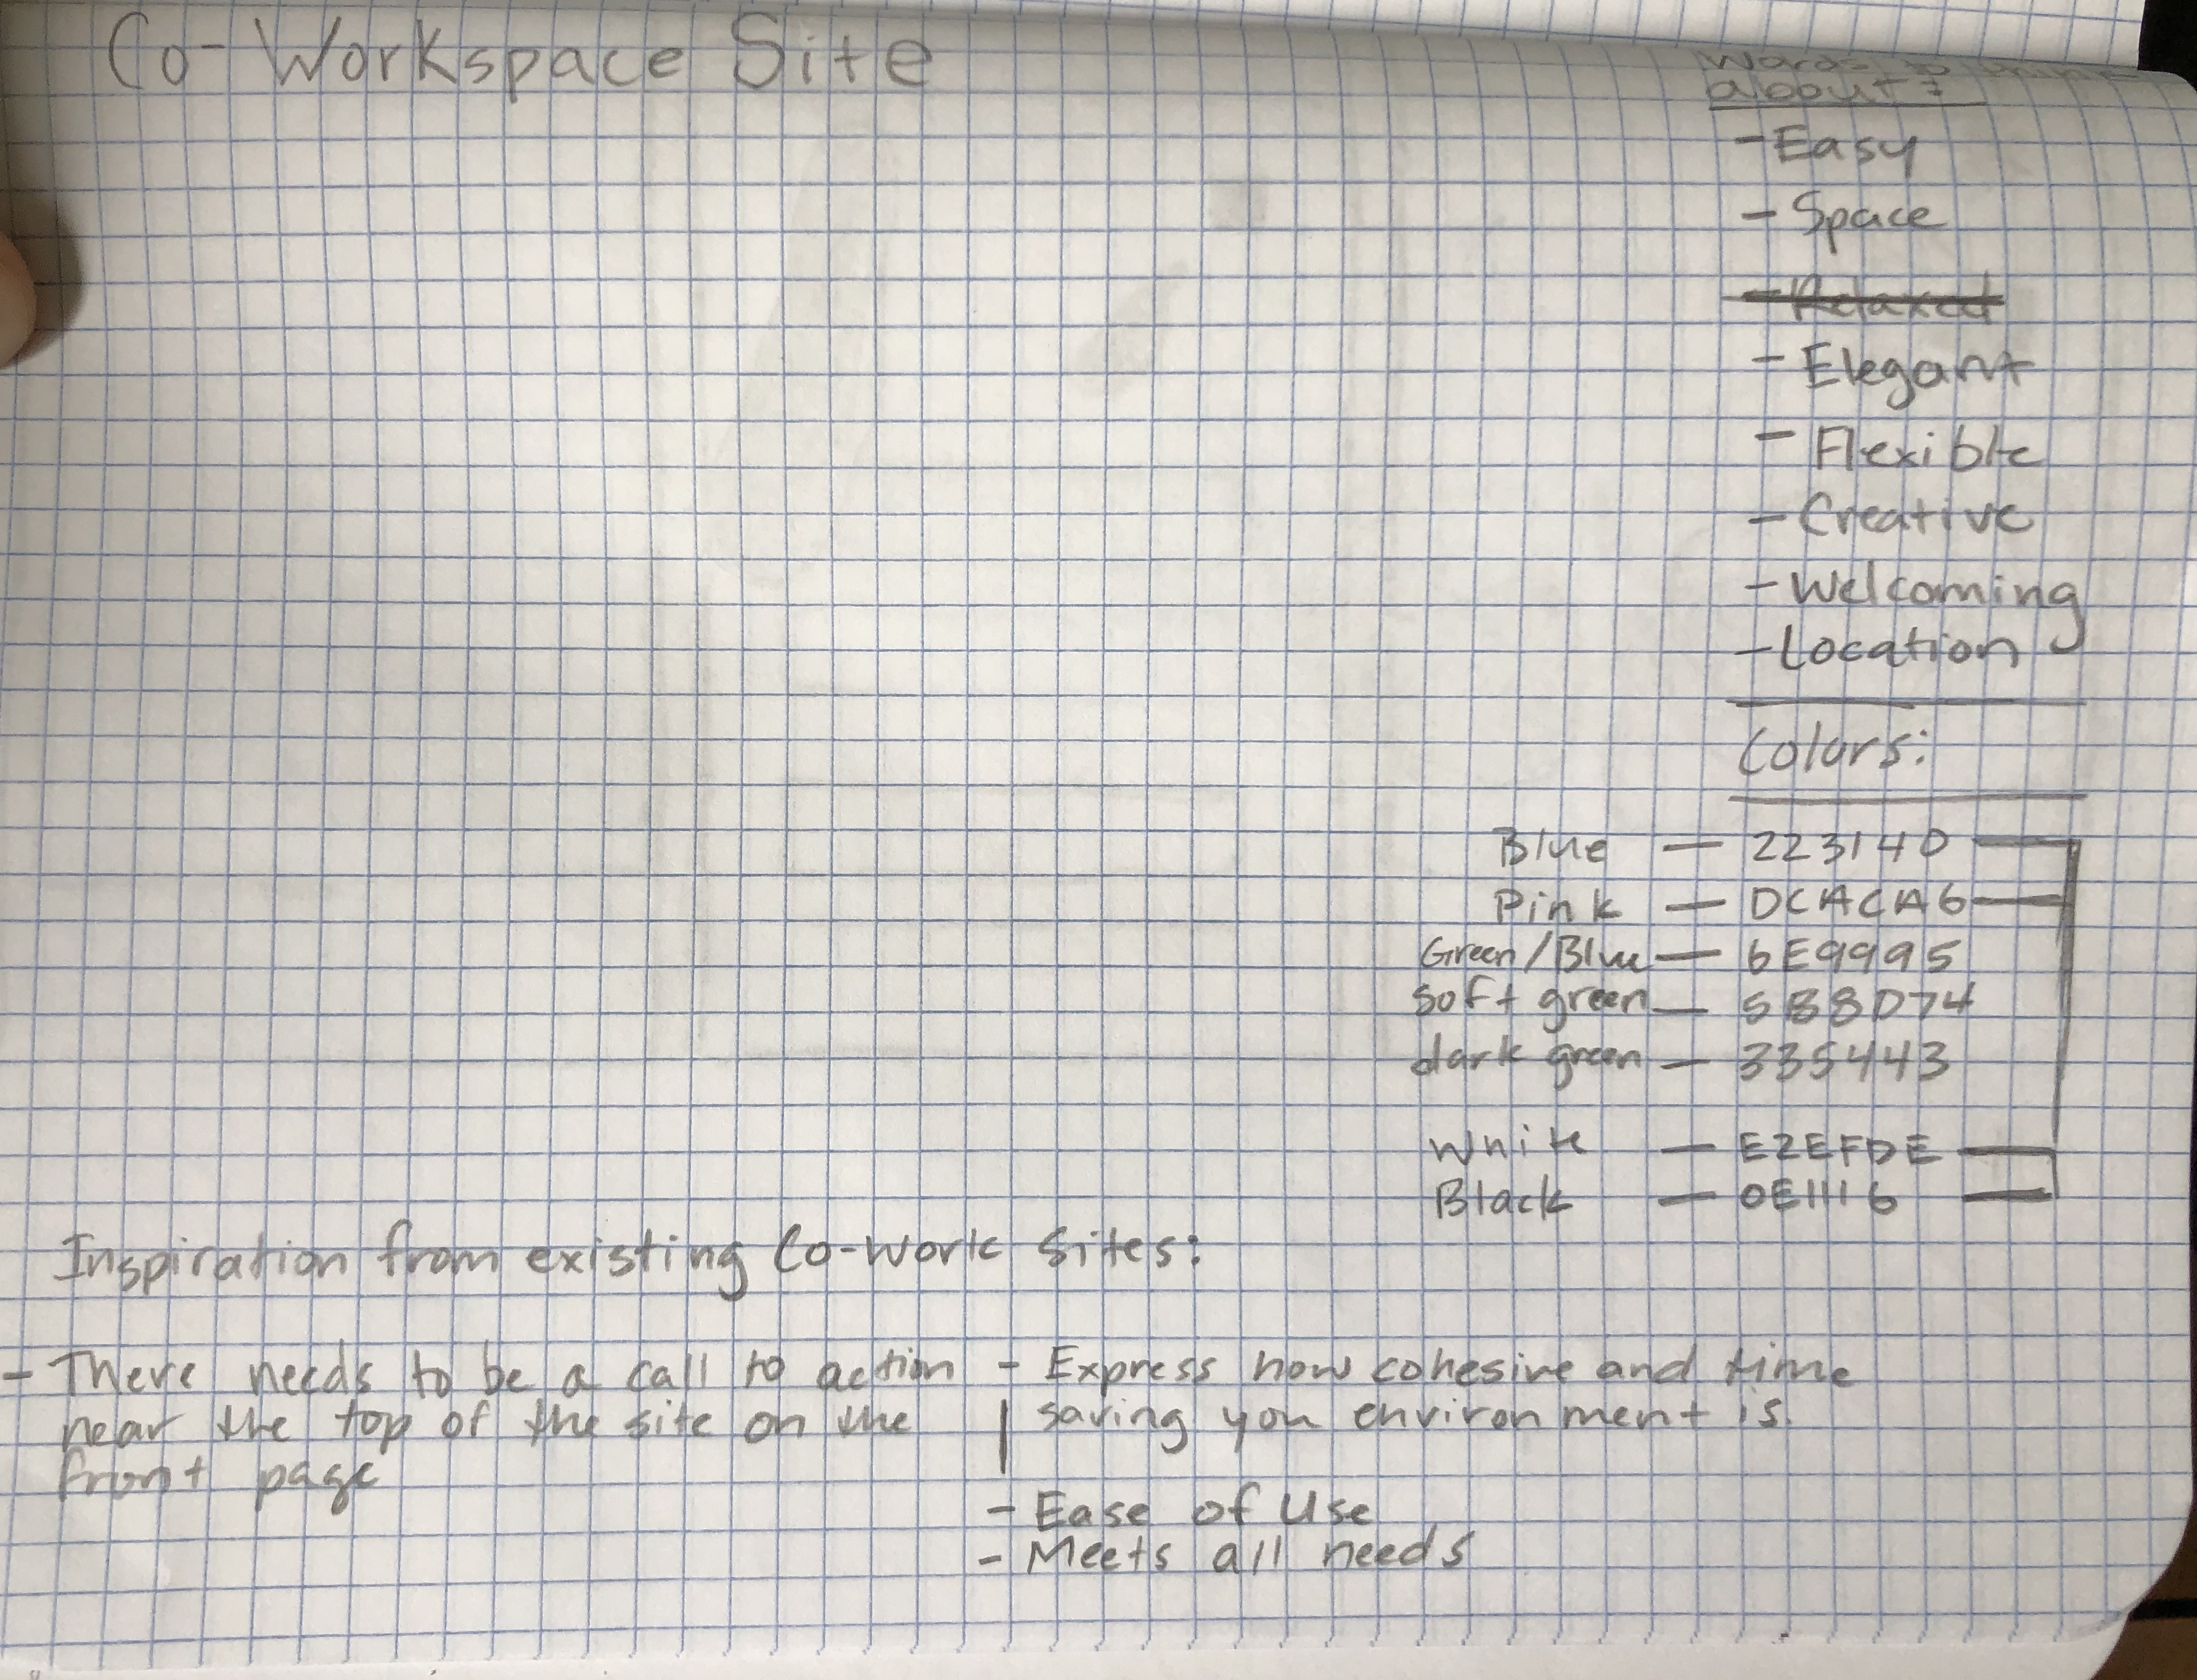 Co-Workspace Site
Words to think
about:
- Easy
- Space
- Relaxed
- Elegant
- Flexible
- Creative
- Welcoming
- Location
Colors:
Blue — 223140
Pink — DCACA6
Green/Blue — 6E9995
Soft green — 5B8D74
dark green — 335443
White — E2EFDE
Black — 0E1116
Inspiration from existing Co-Work Sites:
- There needs to be a call to action
near the top of the site on the
front page
- Express how cohesive and time
saving you environment is.
- Ease of Use
- Meets all needs